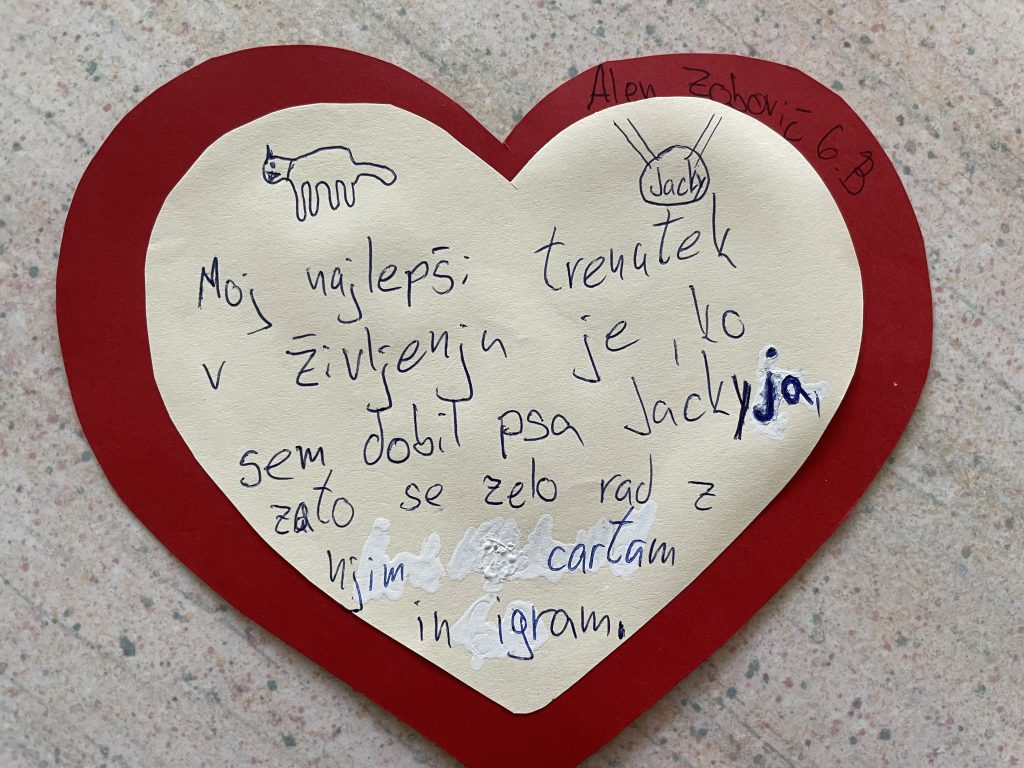 Alen Zobovič 6.B
Jacky
Moj najlepši trenutek
v življenju je, ko
sem dobil psa Jackyja,
zato se zelo rad z
njim cartam
in igram.